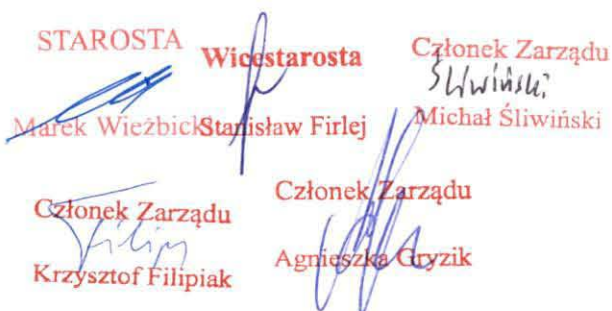 STAROSTA
Marek Wieżbicki
Wicestarosta
Stanisław Firlej
Członek Zarządu
Śliwiński
Michał Śliwiński
Członek Zarządu
Filip
Krzysztof Filipiak
Członek Zarządu
Agnieszka Gryzik